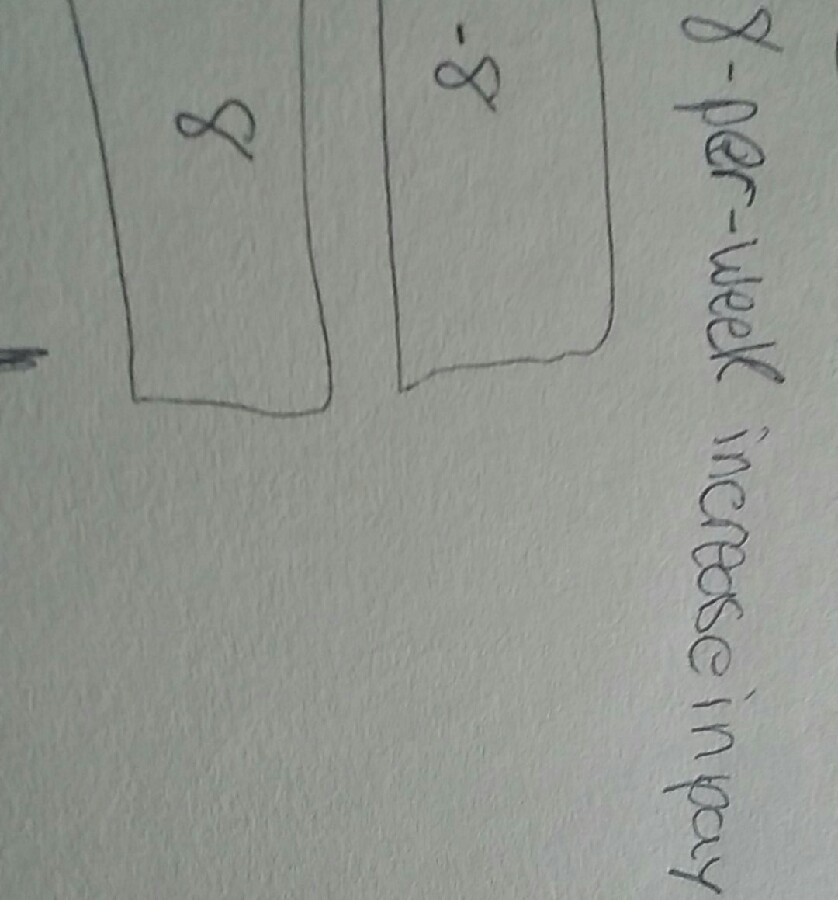 8-per-week increase in pay
-8
8